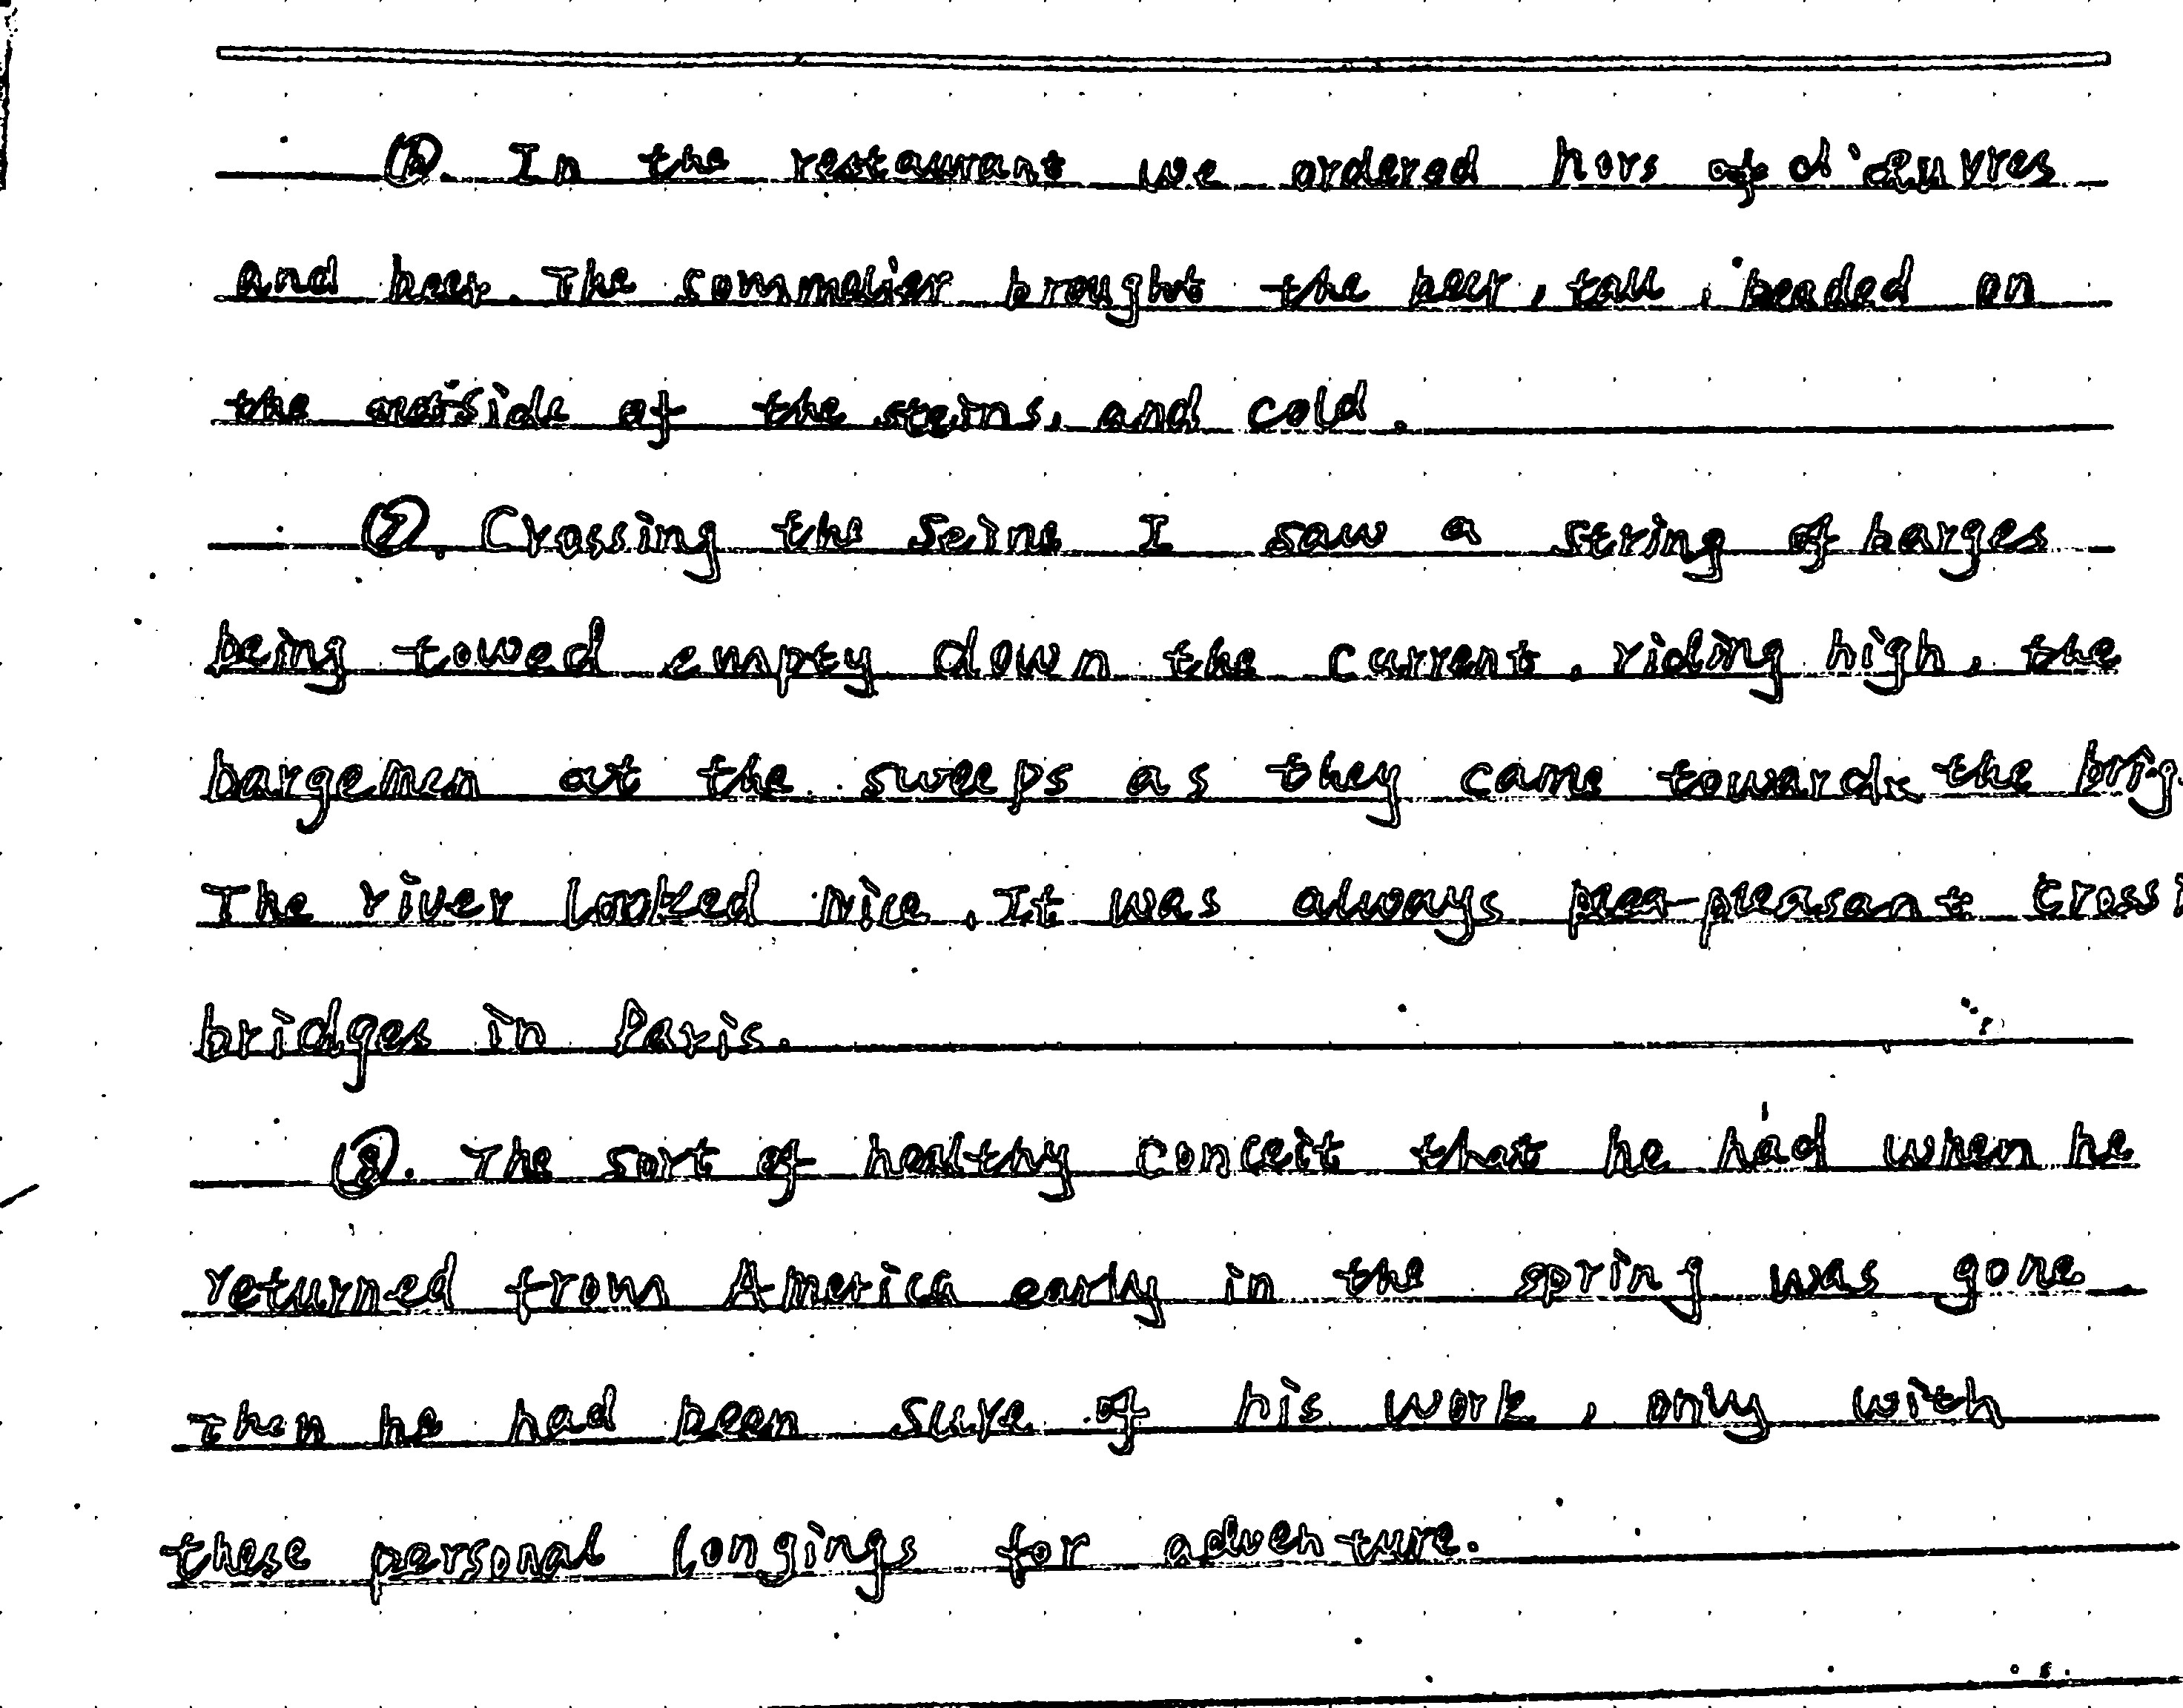 ⑥. In the restaurant we ordered hors of d'œuvres
and beer. The sommelier brought the beer, tall, beaded on
the outside of the steins, and cold.
⑦. Crossing the Seine I saw a string of barges
being towed empty down the current, riding high, the
bargemen at the sweeps as they came towards the brig
The river looked nice. It was always plea pleasant crossi
bridges in Paris.
⑧. The sort of healthy conceit that he had when he
returned from America early in the spring was gone.
Then he had been sure of his work, only with
these personal longings for adventure.